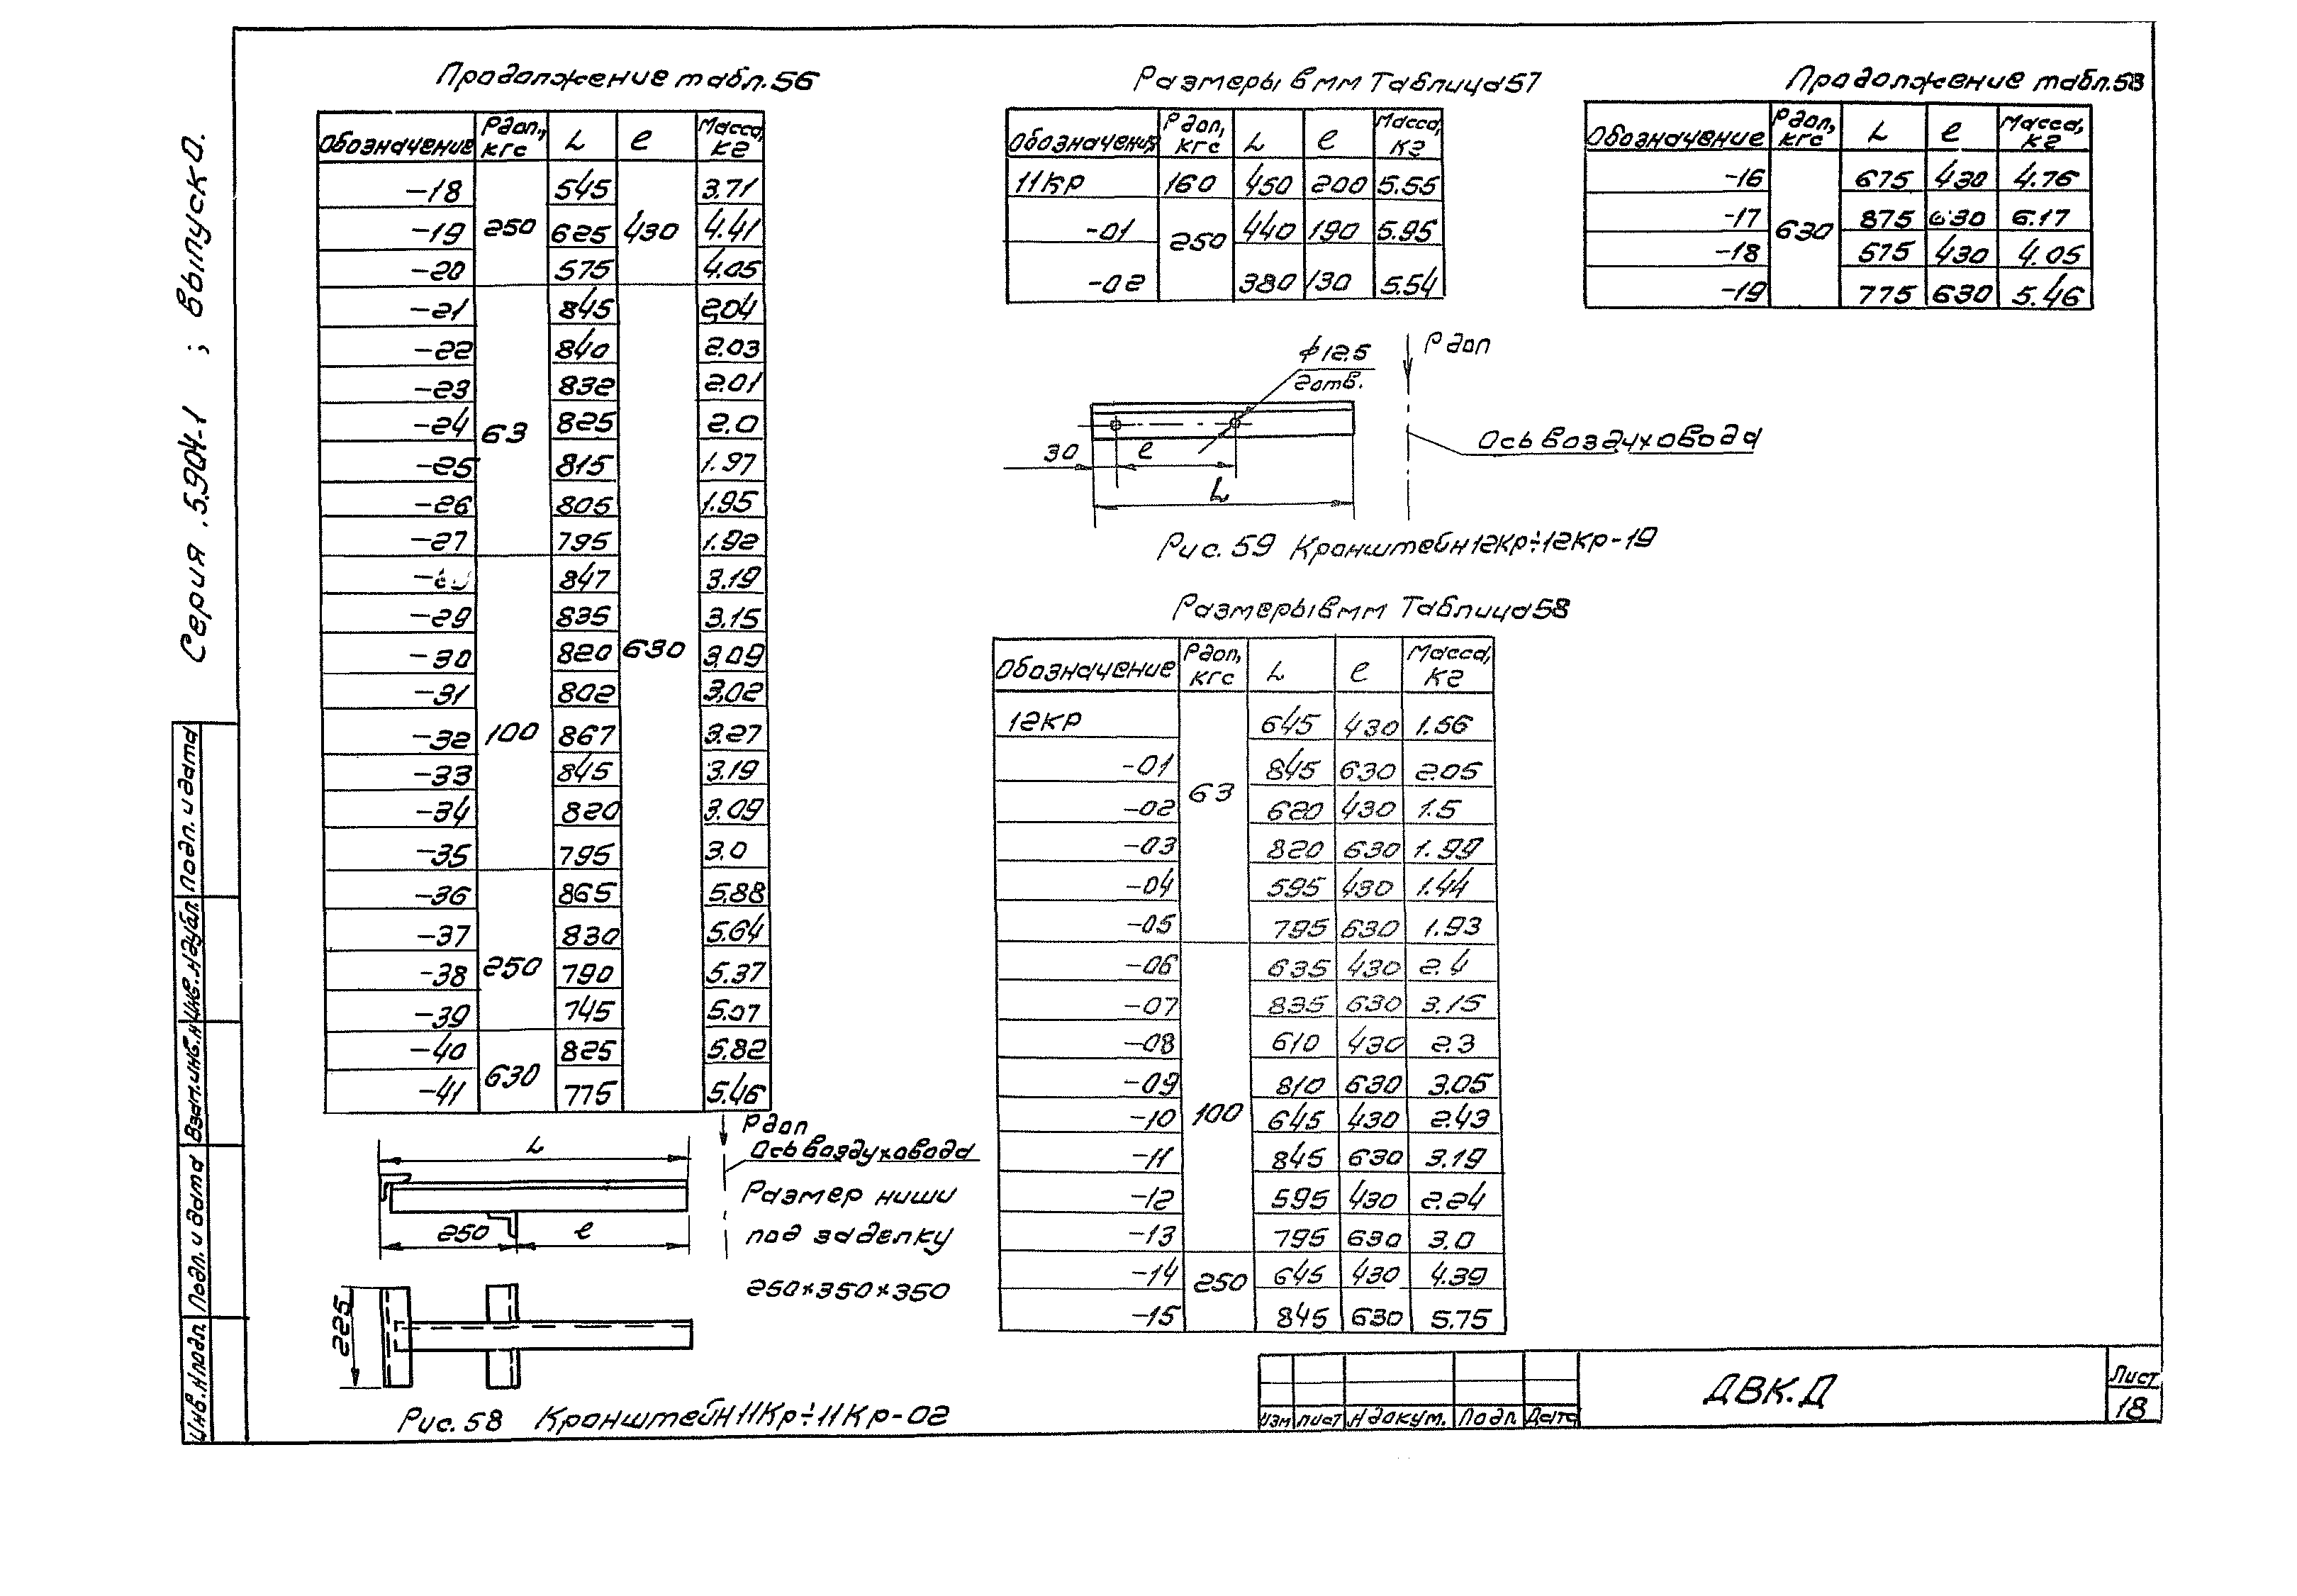 Серия 5.904-1 ; выпуск 0.
Продолжение табл.56
Обозначение Рдоп., кгс L e Масса, кг
-18 250 545 430 3.71
-19 625 4.41
-20 575 4.05
-21 63 845 630 2,04
-22 840 2.03
-23 832 2.01
-24 825 2.0
-25 815 1.97
-26 805 1.95
-27 795 1.92
100 847 3.19
-29 835 3.15
-30 820 3,09
-31 802 3,02
-32 867 3.27
-33 845 3.19
-34 820 3.09
-35 795 3.0
-36 250 865 5.88
-37 830 5.64
-38 790 5.37
-39 745 5.07
-40 630 825 5.82
-41 775 5.46
L
Рдоп
Ось воздуховода
250 e
225
Размер ниши
под заделку
250×350×350
Рис. 58 Кронштейн 11Кр÷11Кр-02
Размеры в мм Таблица 57
Обозначения Рдоп, кгс L e Масса, кг
11КР 160 450 200 5.55
-01 250 440 190 5.95
-02 380 130 5.54
ϕ12.5
2отв.
Рдоп
Ось воздуховода
30 e
L
Рис. 59 Кронштейн 12Кр÷12Кр-19
Размеры в мм Таблица 58
Обозначение Рдоп, кгс L e Масса, кг
12КР 63 645 430 1.56
-01 845 630 2.05
-02 620 430 1.5
-03 820 630 1.99
-04 595 430 1.44
-05 795 630 1.93
-06 100 635 430 2.4
-07 835 630 3.15
-08 610 430 2.3
-09 810 630 3.05
-10 645 430 2.43
-11 845 630 3.19
-12 595 430 2.24
-13 795 630 3.0
-14 250 645 430 4.39
-15 845 630 5.75
Продолжение табл.58
Обозначение Рдоп, кгс L e Масса, кг
-16 630 675 430 4.76
-17 875 630 6.17
-18 575 430 4.05
-19 775 630 5.46
Инв. N подл. Подп. и дата Взам. инв. N Инв. N дубл. Подп. и дата
Изм Лист N докум. Подп. Дата
ДВК.Д
Лист
18